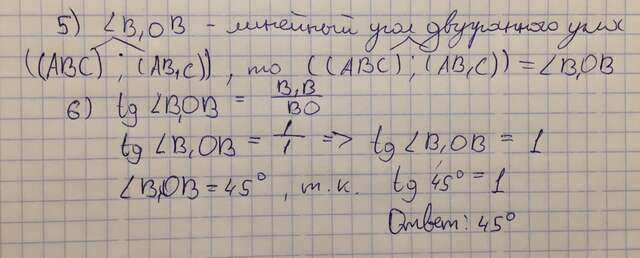 5) ∠B₁OB - линейный угол двугранного угла
((ABC) ; (AB₁C)) , то ((ABC) ; (AB₁C)) = ∠B₁OB
6) tg ∠B₁OB = B₁B/BO
tg ∠B₁OB = 1/1 => tg ∠B₁OB = 1
∠B₁OB = 45° , т.к. tg 45° = 1
Ответ: 45°